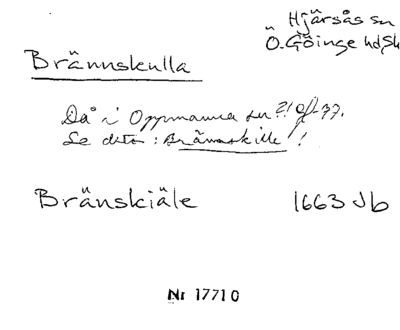 Hjärsås sn
Ö. Göinge hd, Sk
Brännskulla
Då i Oppmanna sn
Se detta: Brännskille!
Bränskiäle 1663 Jb
Nr 17710